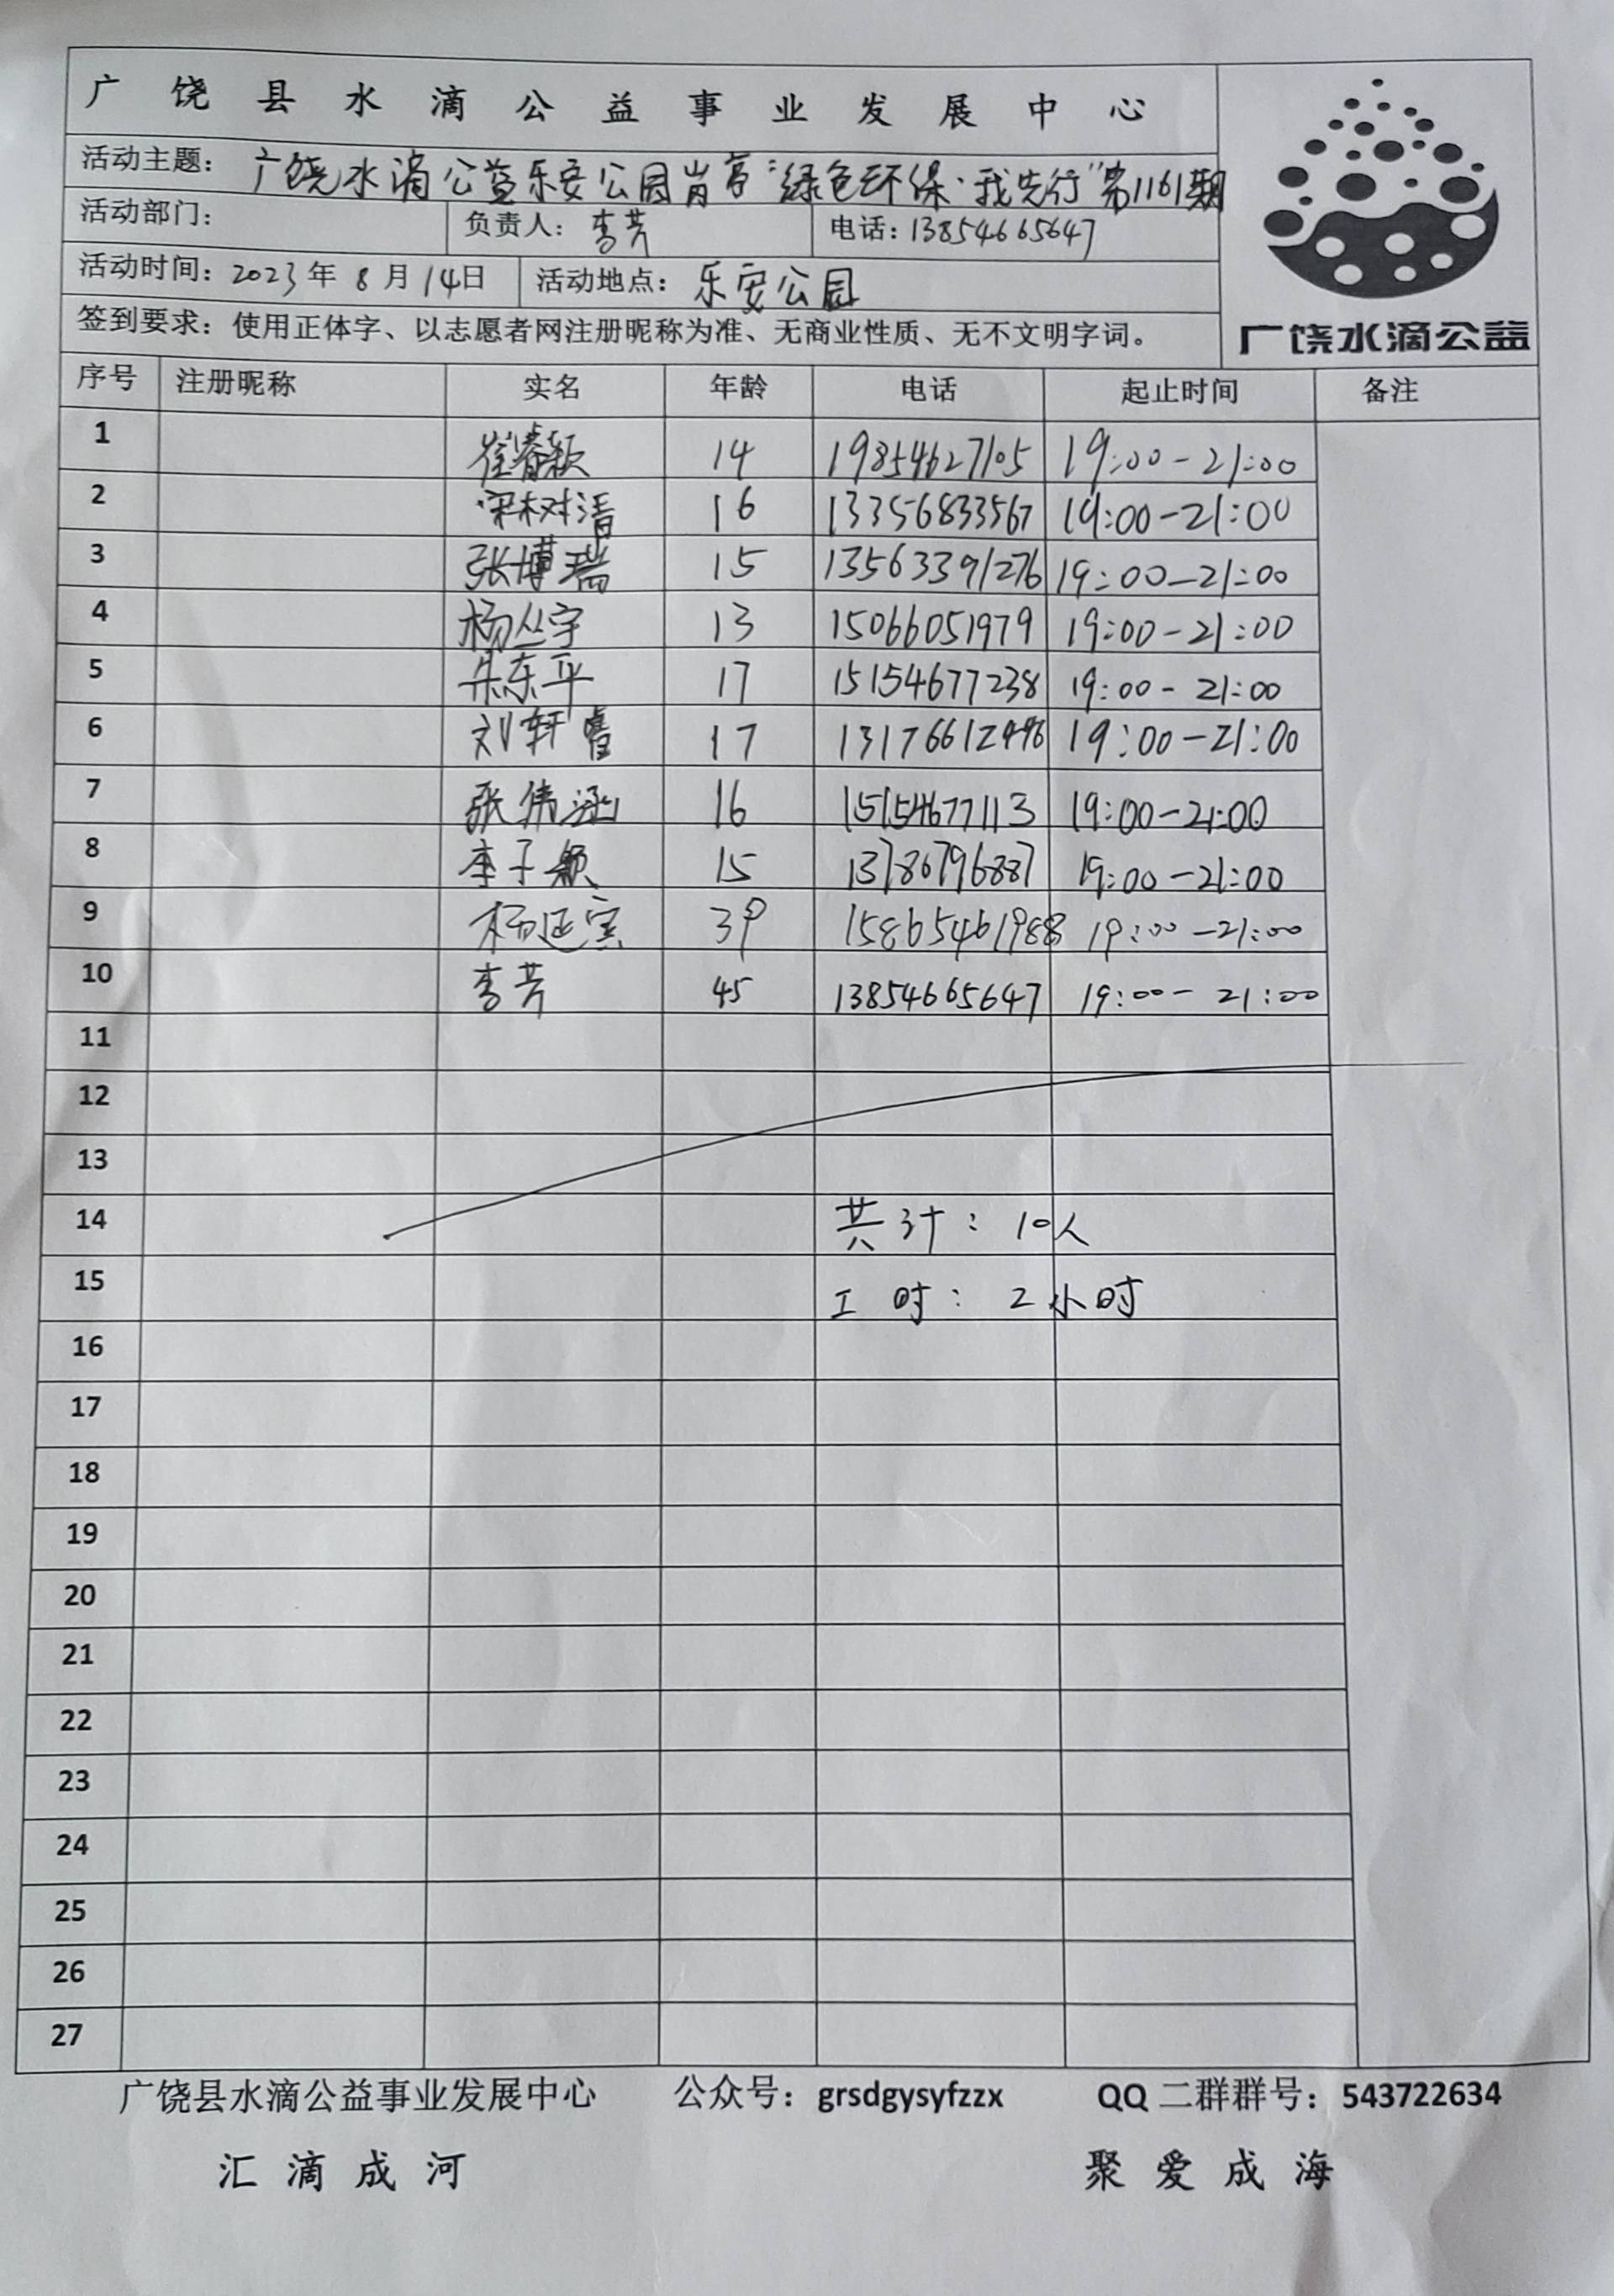 广饶县水滴公益事业发展中心
活动主题：广饶水滴公益乐安公园肖亭“绿色环保·我先行”第1161期
活动部门：
负责人：李芳
电话：13854665647
活动时间：2023年8月14日
活动地点：乐安公园
签到要求：使用正体字、以志愿者网注册昵称为准、无商业性质、无不文明字词。
广饶水滴公益
序号 注册昵称 实名 年龄 电话 起止时间 备注
1 崔睿颖 14 19854627105 19:00-21:00
2 梁树清 16 13356833567 19:00-21:00
3 张博瑞 15 13563391276 19:00-21:00
4 杨丛宇 13 15066051979 19:00-21:00
5 朱东平 17 15154677238 19:00-21:00
6 刘轩睿 17 19:00-21:00
7 张伟涵 16 15154677113 19:00-21:00
8 李子颖 15 19:00-21:00
9 杨延宾 39 15865461988 19:00-21:00
10 李芳 45 13854665647 19:00-21:00
11
12
13
14 共计：10人
15 工时：2小时
16
17
18
19
20
21
22
23
24
25
26
27
广饶县水滴公益事业发展中心 公众号：grsdgysyfzzx QQ二群群号：543722634
汇滴成河 聚爱成海